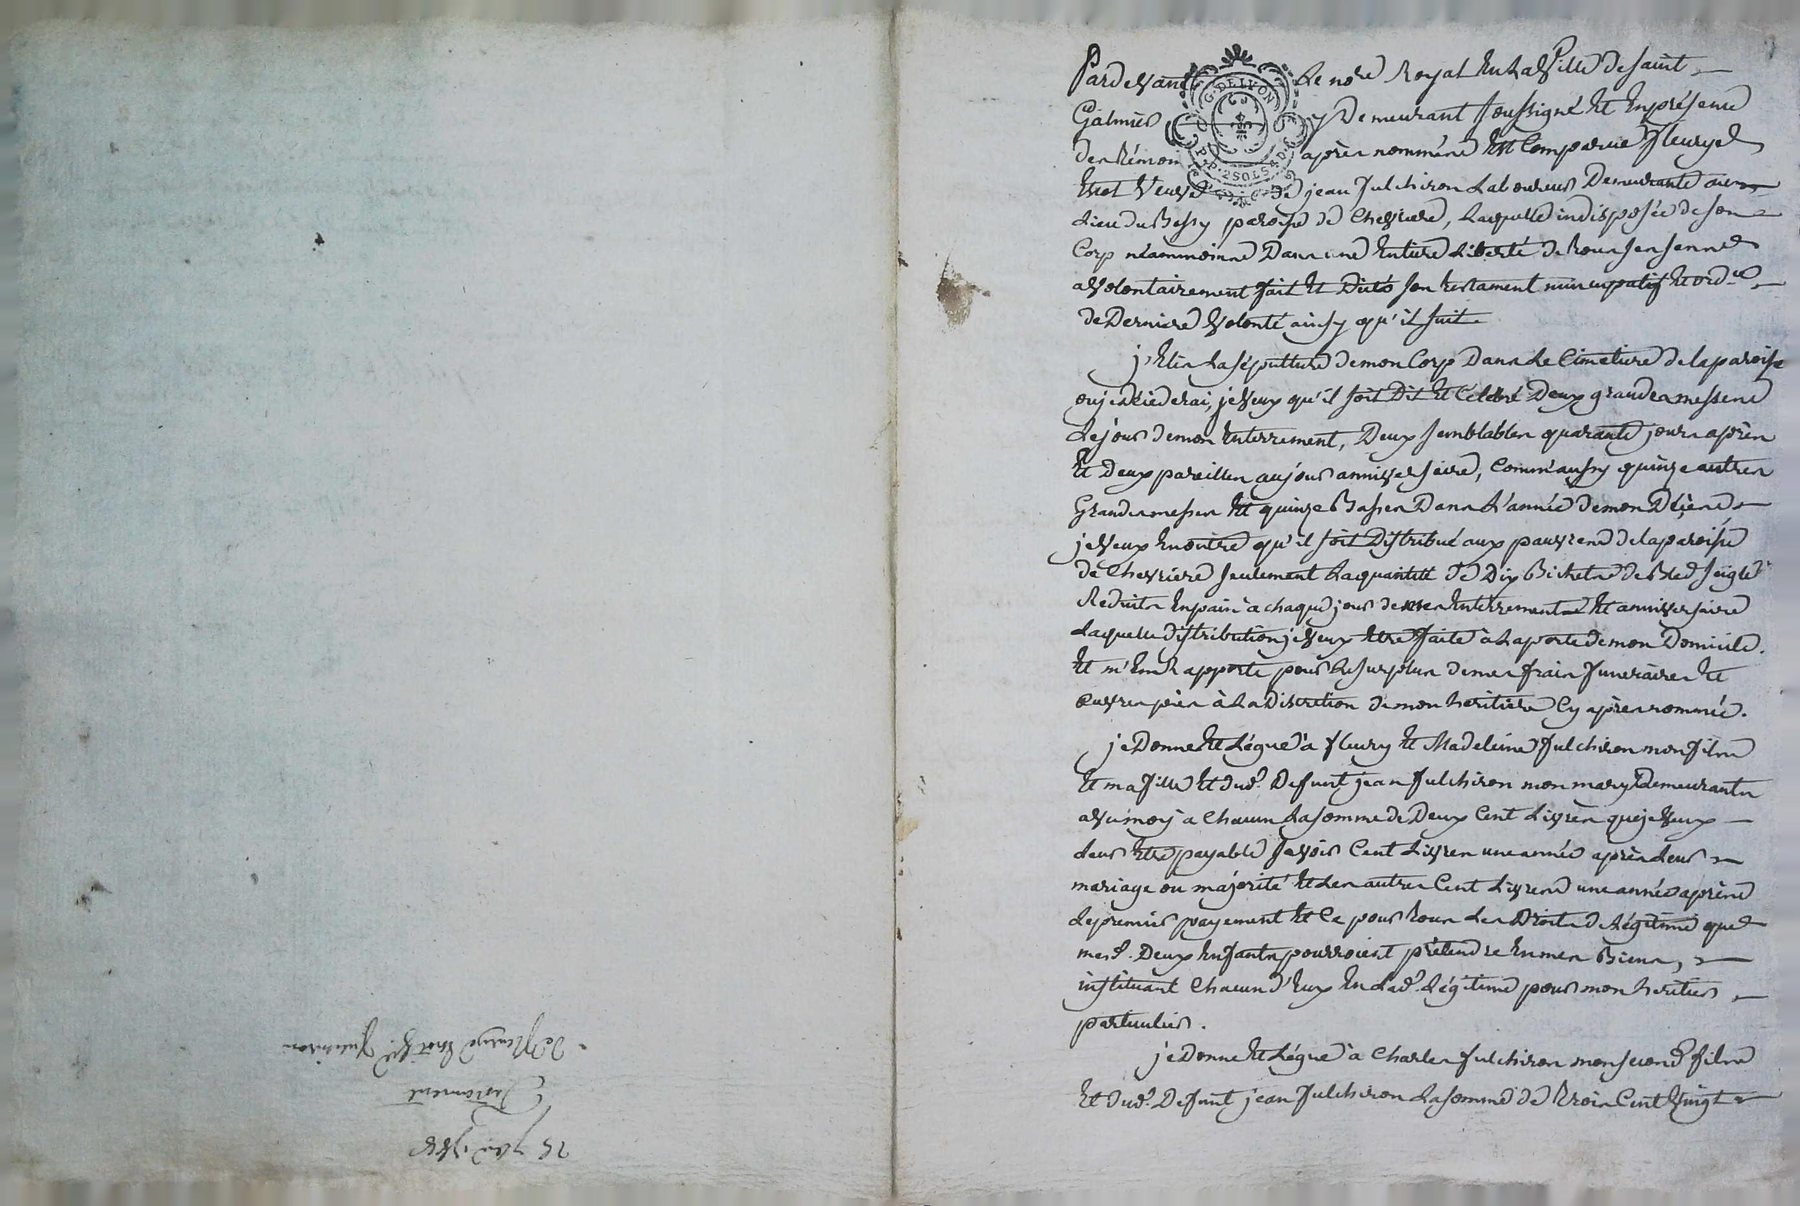 Pardevant Le no.re Royal En La Ville de saint
Galmier y Demeurant soussigné Et En présence
des témoins après nommés Est Comparue fleurye
Veuve de jean fulchiron Laboureur Demeurante au
Lieu du Bessy paroisse de Chevriere, Laquelle indisposée de son
Corp néammoins Dans une Entiere Liberté de tous ses sens
a volontairement fait Et Dicté son testament nuncupatif Et ord.ce
de Derniere Volonté ainsy qu'il suit.
j'Elis La sépulture de mon Corp Dans Le Cimetiere de la paroisse
ou je déciederai, je veux qu'il soit Dit Et Célébré Deux grandes messes
Le jour de mon Enterrement, Deux semblables quarante jours après
Et Deux pareilles au jour anniversaire, Comm'aussy quinze autres
Grandes messes Et quinze Basses Dans L'année de mon Décès
je veux En outre qu'il soit Distribué aux pauvres de la paroisse
de Chevriere seulement La quantité de Dix Bichets de Bled seigle
Reduits En pain a chaque jour de mes Enterrement Et anniversaire
Laquelle distribution je veux Etre faite à La porte de mon Domicile.
Et m'En Rapporte pour Le surplus de mes frais funeraires Et
œuvres pies à La Discretion de mon heritiere Cy après nommé.
je Donne Et Légue à fleury Et Madeleine fulchiron mon fils
Et ma fille Et dud. Defunt jean fulchiron mon mary Demeurants
avec moy a Chacun La somme de Deux Cent Livres que je veux
Leur Etre payable savoir Cent Livres une année après Leur
mariage ou majorité Et Les autres Cent Livres une année après
Le premier payement Et Ce pour tous Les Droits de Légitime que
mesd. Deux Enfants pourroient prétendre En mes Biens,
instituant Chacun d'Eux En Lad. Légitime pour mon heritier
particulier.
je Donne Et Légue à Charles fulchiron mon second fils
Et dud. Defunt jean fulchiron La somme de trois Cent Vingt
Testament
de fleurye V.e fulchiron
G. DE LYON
P.P. 2 SOLS 4 D.